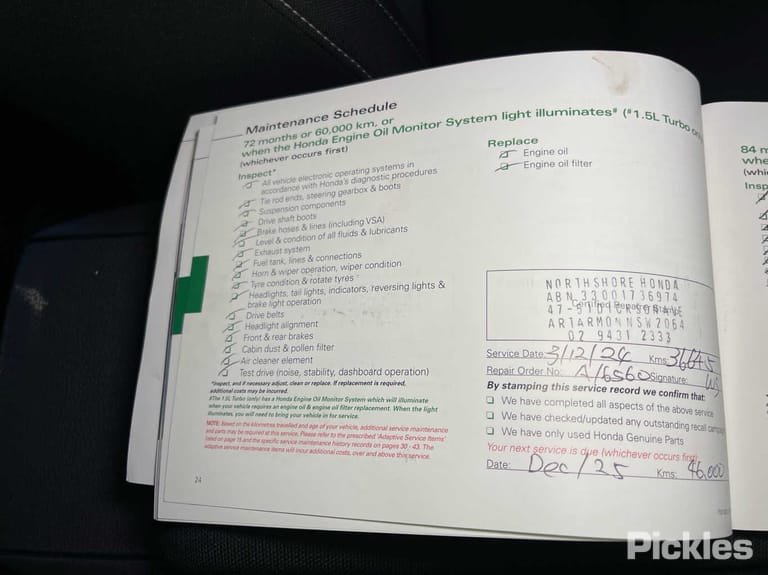 Maintenance Schedule
72 months or 60,000 km, or
when the Honda Engine Oil Monitor System light illuminates# (#1.5L Turbo only)
(whichever occurs first)
Inspect*
All vehicle electronic operating systems in
accordance with Honda's diagnostic procedures
Tie rod ends, steering gearbox & boots
Suspension components
Drive shaft boots
Brake hoses & lines (including VSA)
Level & condition of all fluids & lubricants
Exhaust system
Fuel tank, lines & connections
Horn & wiper operation, wiper condition
Tyre condition & rotate tyres
Headlights, tail lights, indicators, reversing lights &
brake light operation
Drive belts
Headlight alignment
Front & rear brakes
Cabin dust & pollen filter
Air cleaner element
Test drive (noise, stability, dashboard operation)
*Inspect, and if necessary adjust, clean or replace. If replacement is required,
additional costs may be incurred.
#The 1.5L Turbo (only) has a Honda Engine Oil Monitor System which will illuminate
when your vehicle requires an engine oil & engine oil filter replacement. When the light
illuminates, you will need to bring your vehicle in for service.
NOTE: Based on the kilometres travelled and age of your vehicle, additional service maintenance
and parts may be required at this service. Please refer to the prescribed 'Adaptive Service Items'
listed on page 15 and the specific service maintenance history records on pages 30 - 43. The
adaptive service maintenance items will incur additional costs, over and above this service.
24
Replace
Engine oil
Engine oil filter
NORTHSHORE HONDA
ABN 33001736974
Certified Repairer Stamp
47-51 DICKSON AVE
ARTARMON NSW 2064
02 9431 2333
Service Date: 3/12/24 Kms: 36045
Repair Order No: A16560 Signature:
By stamping this service record we confirm that:
We have completed all aspects of the above service
We have checked/updated any outstanding recall campaigns
We have only used Honda Genuine Parts
Your next service is due (whichever occurs first)
Date: Dec/25 Kms: 46,000
84 m
whe
(whi
Insp
Pickles